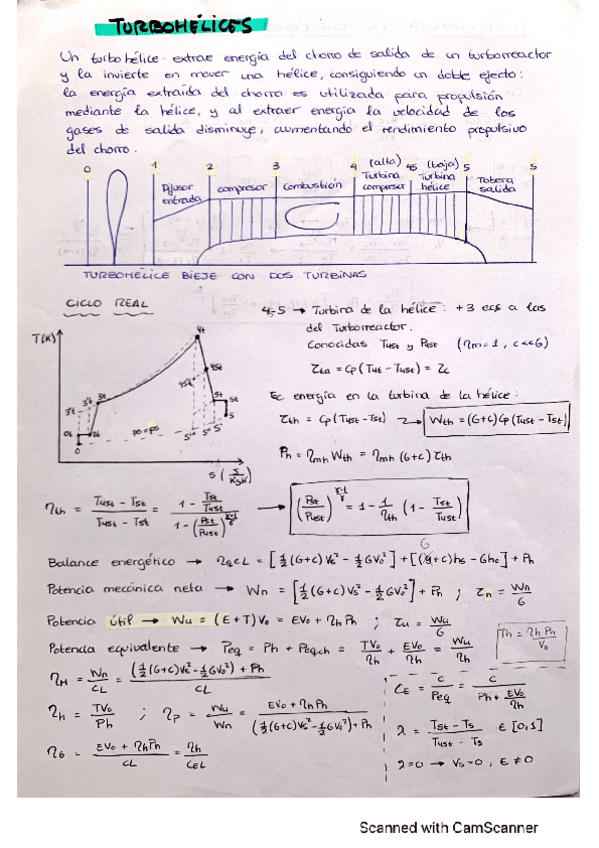 TURBOHÉLICES
Un turbohélice extrae energía del chorro de salida de un turborreactor
y la invierte en mover una hélice, consiguiendo un doble efecto:
la energía extraída del chorro es utilizada para propulsión
mediante la hélice, y al extraer energía la velocidad de los
gases de salida disminuye, aumentando el rendimiento propulsivo
del chorro.
0 1 2 3 4 (alta) 45 (baja) 5 S
Difusor entrada compresor Combustión Turbina compresor Turbina hélice Tobera salida
TURBOHÉLICE BIEJE CON DOS TURBINAS
CICLO REAL
T(K)
4t
45t
45't
5t
St
S
3't
3t
0t
2t
0
P0=PS
5'
S'
s (J/KgK)
45-5 → Turbina de la hélice: +3 ecs a las
del Turborreactor.
Conocidas T45t y P45t (ηm=1, c<<G)
τta = Cp(T4t - T45t) = τc
Ec energía en la turbina de la hélice:
τth = Cp(T45t - T5t) → Wth = (G+c)Cp(T45t - T5t)
Ph = ηmh Wth = ηmh (G+c) τth
ηth = (T45t - T5t)/(T45t - T5't) = (1 - T5t/T45t)/(1 - (P5t/P45t)^((γ-1)/γ)) → (P5t/P45t)^((γ-1)/γ) = 1 - 1/ηth (1 - T5t/T45t)
Balance energético → ηqcL = [½(G+c)Vs² - ½GV0²] + [(G+c)hs - Gh0] + Ph
Potencia mecánica neta → Wn = [½(G+c)Vs² - ½GV0²] + Ph ; τn = Wn/G
Potencia útil → Wu = (E+T)V0 = EV0 + ηhPh ; τu = Wu/G
Th = ηhPh/V0
Potencia equivalente → Peq = Ph + Peq,ch = TV0/ηh + EV0/ηh = Wu/ηh
ηM = Wn/cL = ((½(G+c)Vs² - ½GV0²) + Ph)/cL
CE = c/Peq = c/(Ph + EV0/ηh)
ηh = TV0/Ph ; ηp = Wu/Wn = (EV0 + ηhPh)/((½(G+c)Vs² - ½GV0²) + Ph)
λ = (T5t - Ts)/(T45t - Ts) ∈ [0,1]
ηG = (EV0 + ηhPh)/cL = ηh/(CEL)
λ=0 → Vs=0, E≠0
Scanned with CamScanner